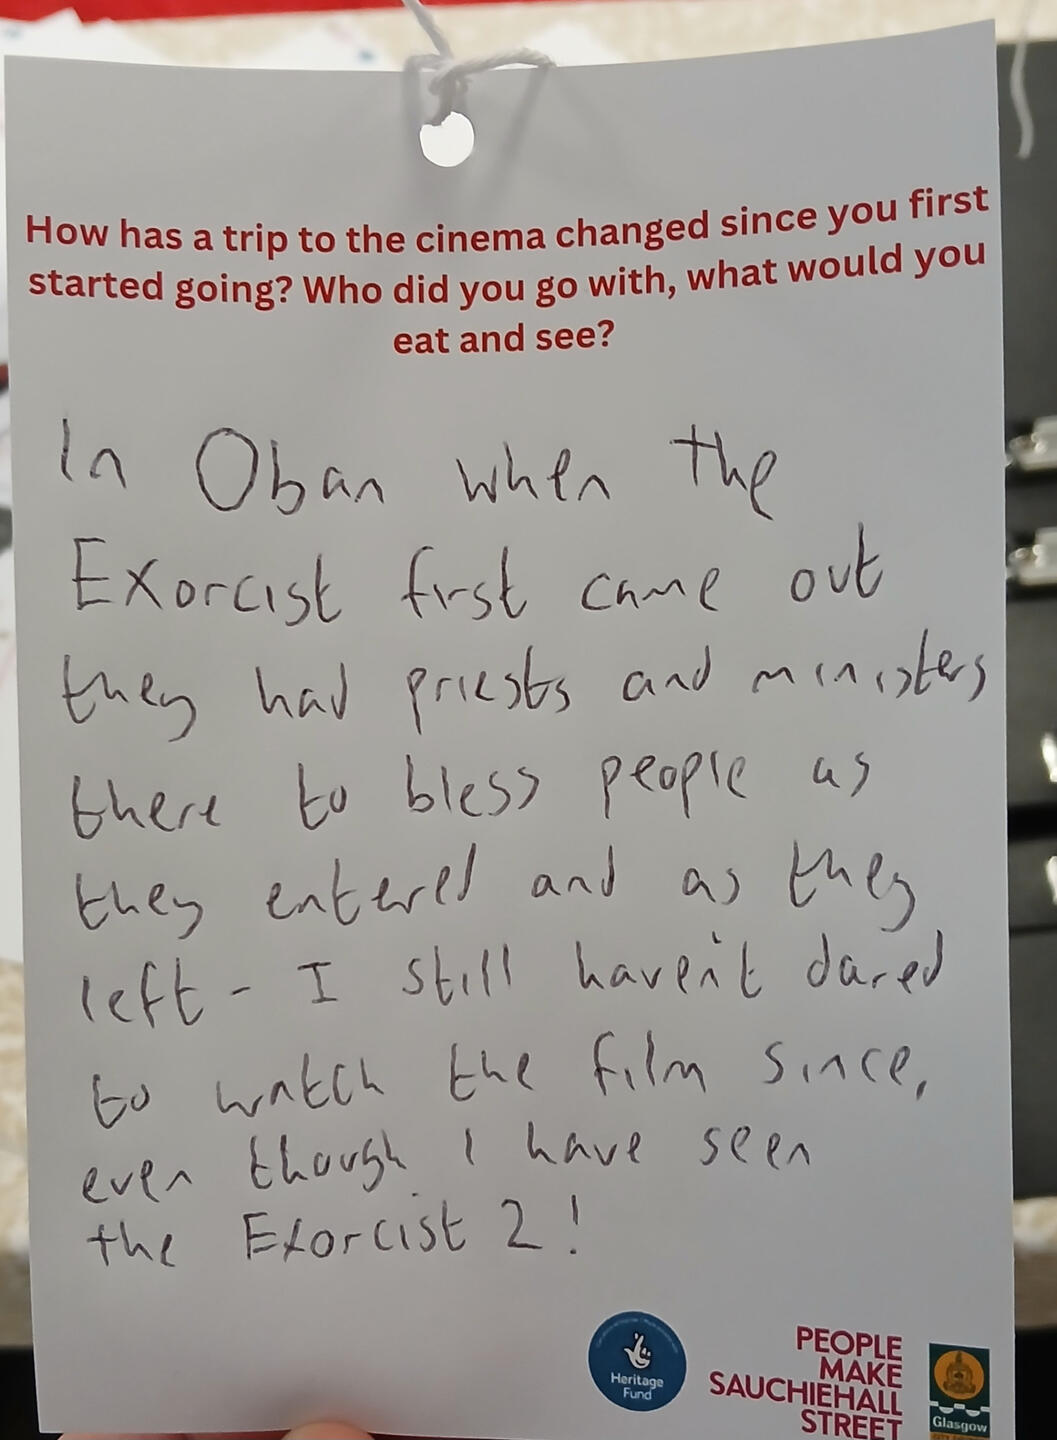 How has a trip to the cinema changed since you first
started going? Who did you go with, what would you
eat and see?
In Oban when the
Exorcist first came out
they had priests and ministers
there to bless people as
they entered and as they
left - I still haven't dared
to watch the film since,
even though I have seen
the Exorcist 2!
Heritage
Fund
PEOPLE
MAKE
SAUCHIEHALL
STREET
Glasgow